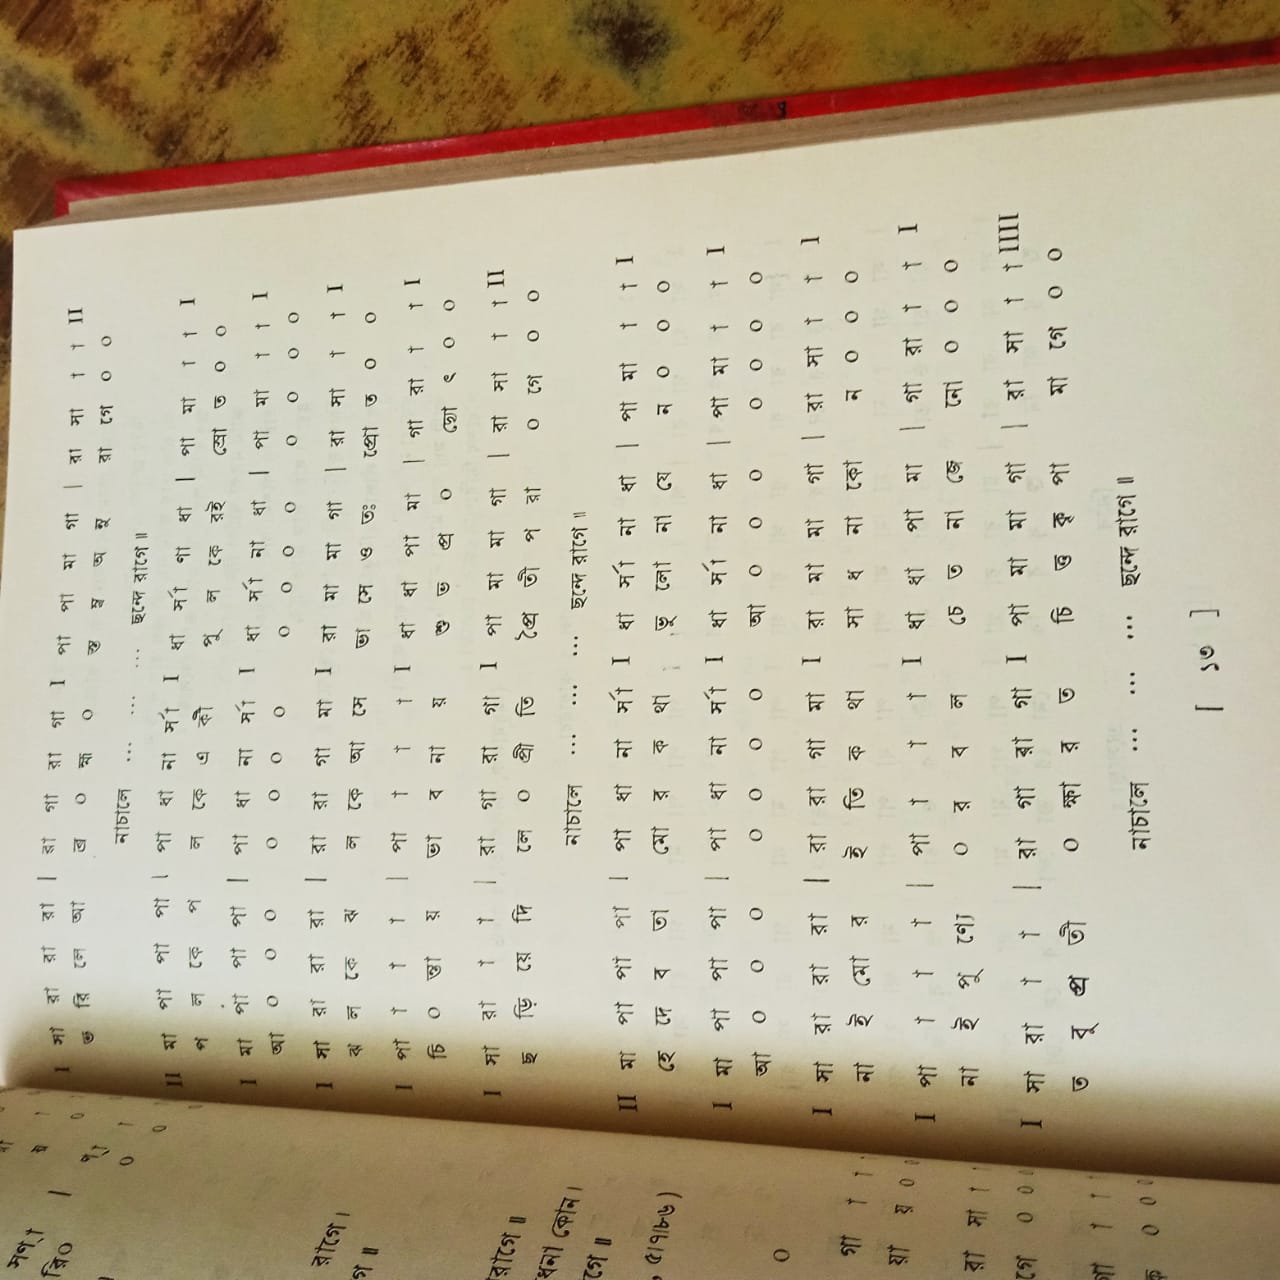 I সা রা রা রা | রা গা রা গা I পা পা মা গা | রা সা া া II
ভ রি লে আ ০ হ্ম ০ স্ত ম্ব অ নু রা গে ০ ০
নাচালে ... ... ... ছন্দে রাগে॥
II মা পা পা পা | পা ধা না র্সা I ধা র্সা ণা ধা | পা মা া া I
প ল কে প ল কে এ কী পু ল কে রই স্রো ত ০ ০
I মা পা পা পা | পা ধা না র্সা I ধা র্সা না ধা | পা মা া া I
আ ০ ০ ০ ০ ০ ০ ০ ০ ০ ০ ০ ০ ০ ০ ০
I সা রা রা রা | রা রা গা মা I রা মা মা গা | রা সা া া I
ঝ ল কে ঝ ল কে আ সে ভা সে ও তঃ প্রো ত ০ ০
I পা া া া | পা া া া I ধা ধা পা মা | গা রা া া I
চি ০ ন্তা য় ভা ব না য় শু ভ প্র ০ দ্যো ৎ ০ ০
I সা রা া া | রা গা রা গা I পা মা মা গা | রা সা া া II
ছ ড়ি য়ে দি লে ০ প্রী তি প্রৈ তী প রা ০ গে ০ ০
নাচালে ... ... ... ছন্দে রাগে॥
II মা পা পা পা | পা ধা না র্সা I ধা র্সা না ধা | পা মা া া I
হে দে ব তা মো র ক থা ভূ লো না যে ন ০ ০ ০
I মা পা পা পা | পা ধা না র্সা I ধা র্সা না ধা | পা মা া া I
আ ০ ০ ০ ০ ০ ০ ০ আ ০ ০ ০ ০ ০ ০ ০
I সা রা রা রা | রা রা গা মা I রা মা মা গা | রা সা া া I
না ই মো র ই তি ক থা সা ধ না কো ন ০ ০ ০
I পা া া া | পা া া া I ধা ধা পা মা | গা রা া া I
না ই পু ণ্যে ০ র ব ল চে ত না জে নো ০ ০ ০
I সা রা া া | রা গা রা গা I পা মা মা গা | রা সা া া IIII
ত বু প্র তী ০ ক্ষা র ত চি ত্ত কৃ পা মা গে ০ ০
নাচালে ... ... ... ছন্দে রাগে॥
[ ১৩ ]
রাগে।
রাগে॥
ধনা কোন।
গে॥
৫।৭।৮৬)